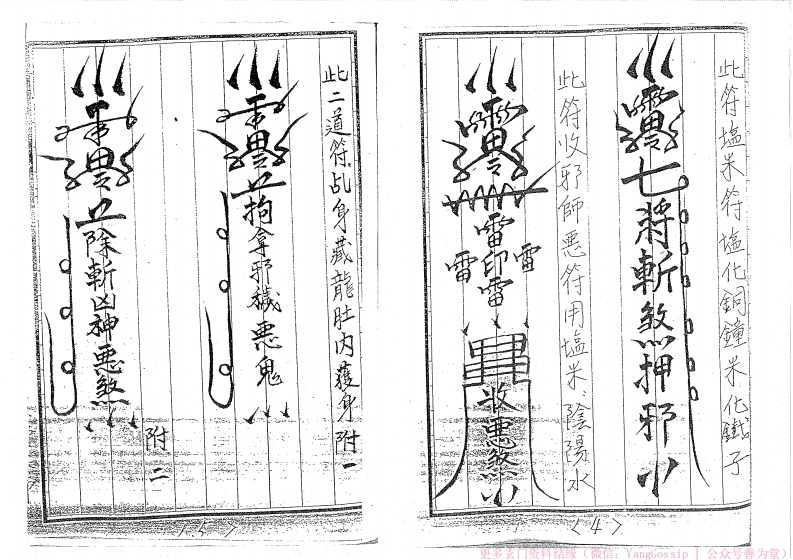 此符塩米符塩化銅鐘米化鐵子
七將斬煞押邪
此符收邪師惡符用塩米、陰陽水
雷
雷印雷
雷
收惡煞
<4>
此二道符乩身藏龍肚內護身
附一
拘拿邪穢惡鬼
除斬凶神惡煞
附二
<5>
更多玄门资料结缘（微信：YangGossip | 公众号善为堂）